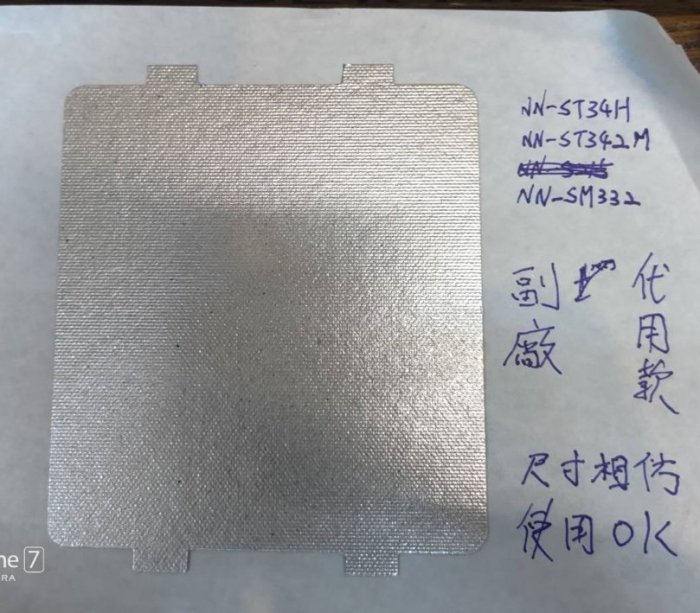 NN-ST34H
NN-ST342M
NN-SM332
副廠
代用款
尺寸相仿
使用OK
ne 7
RA